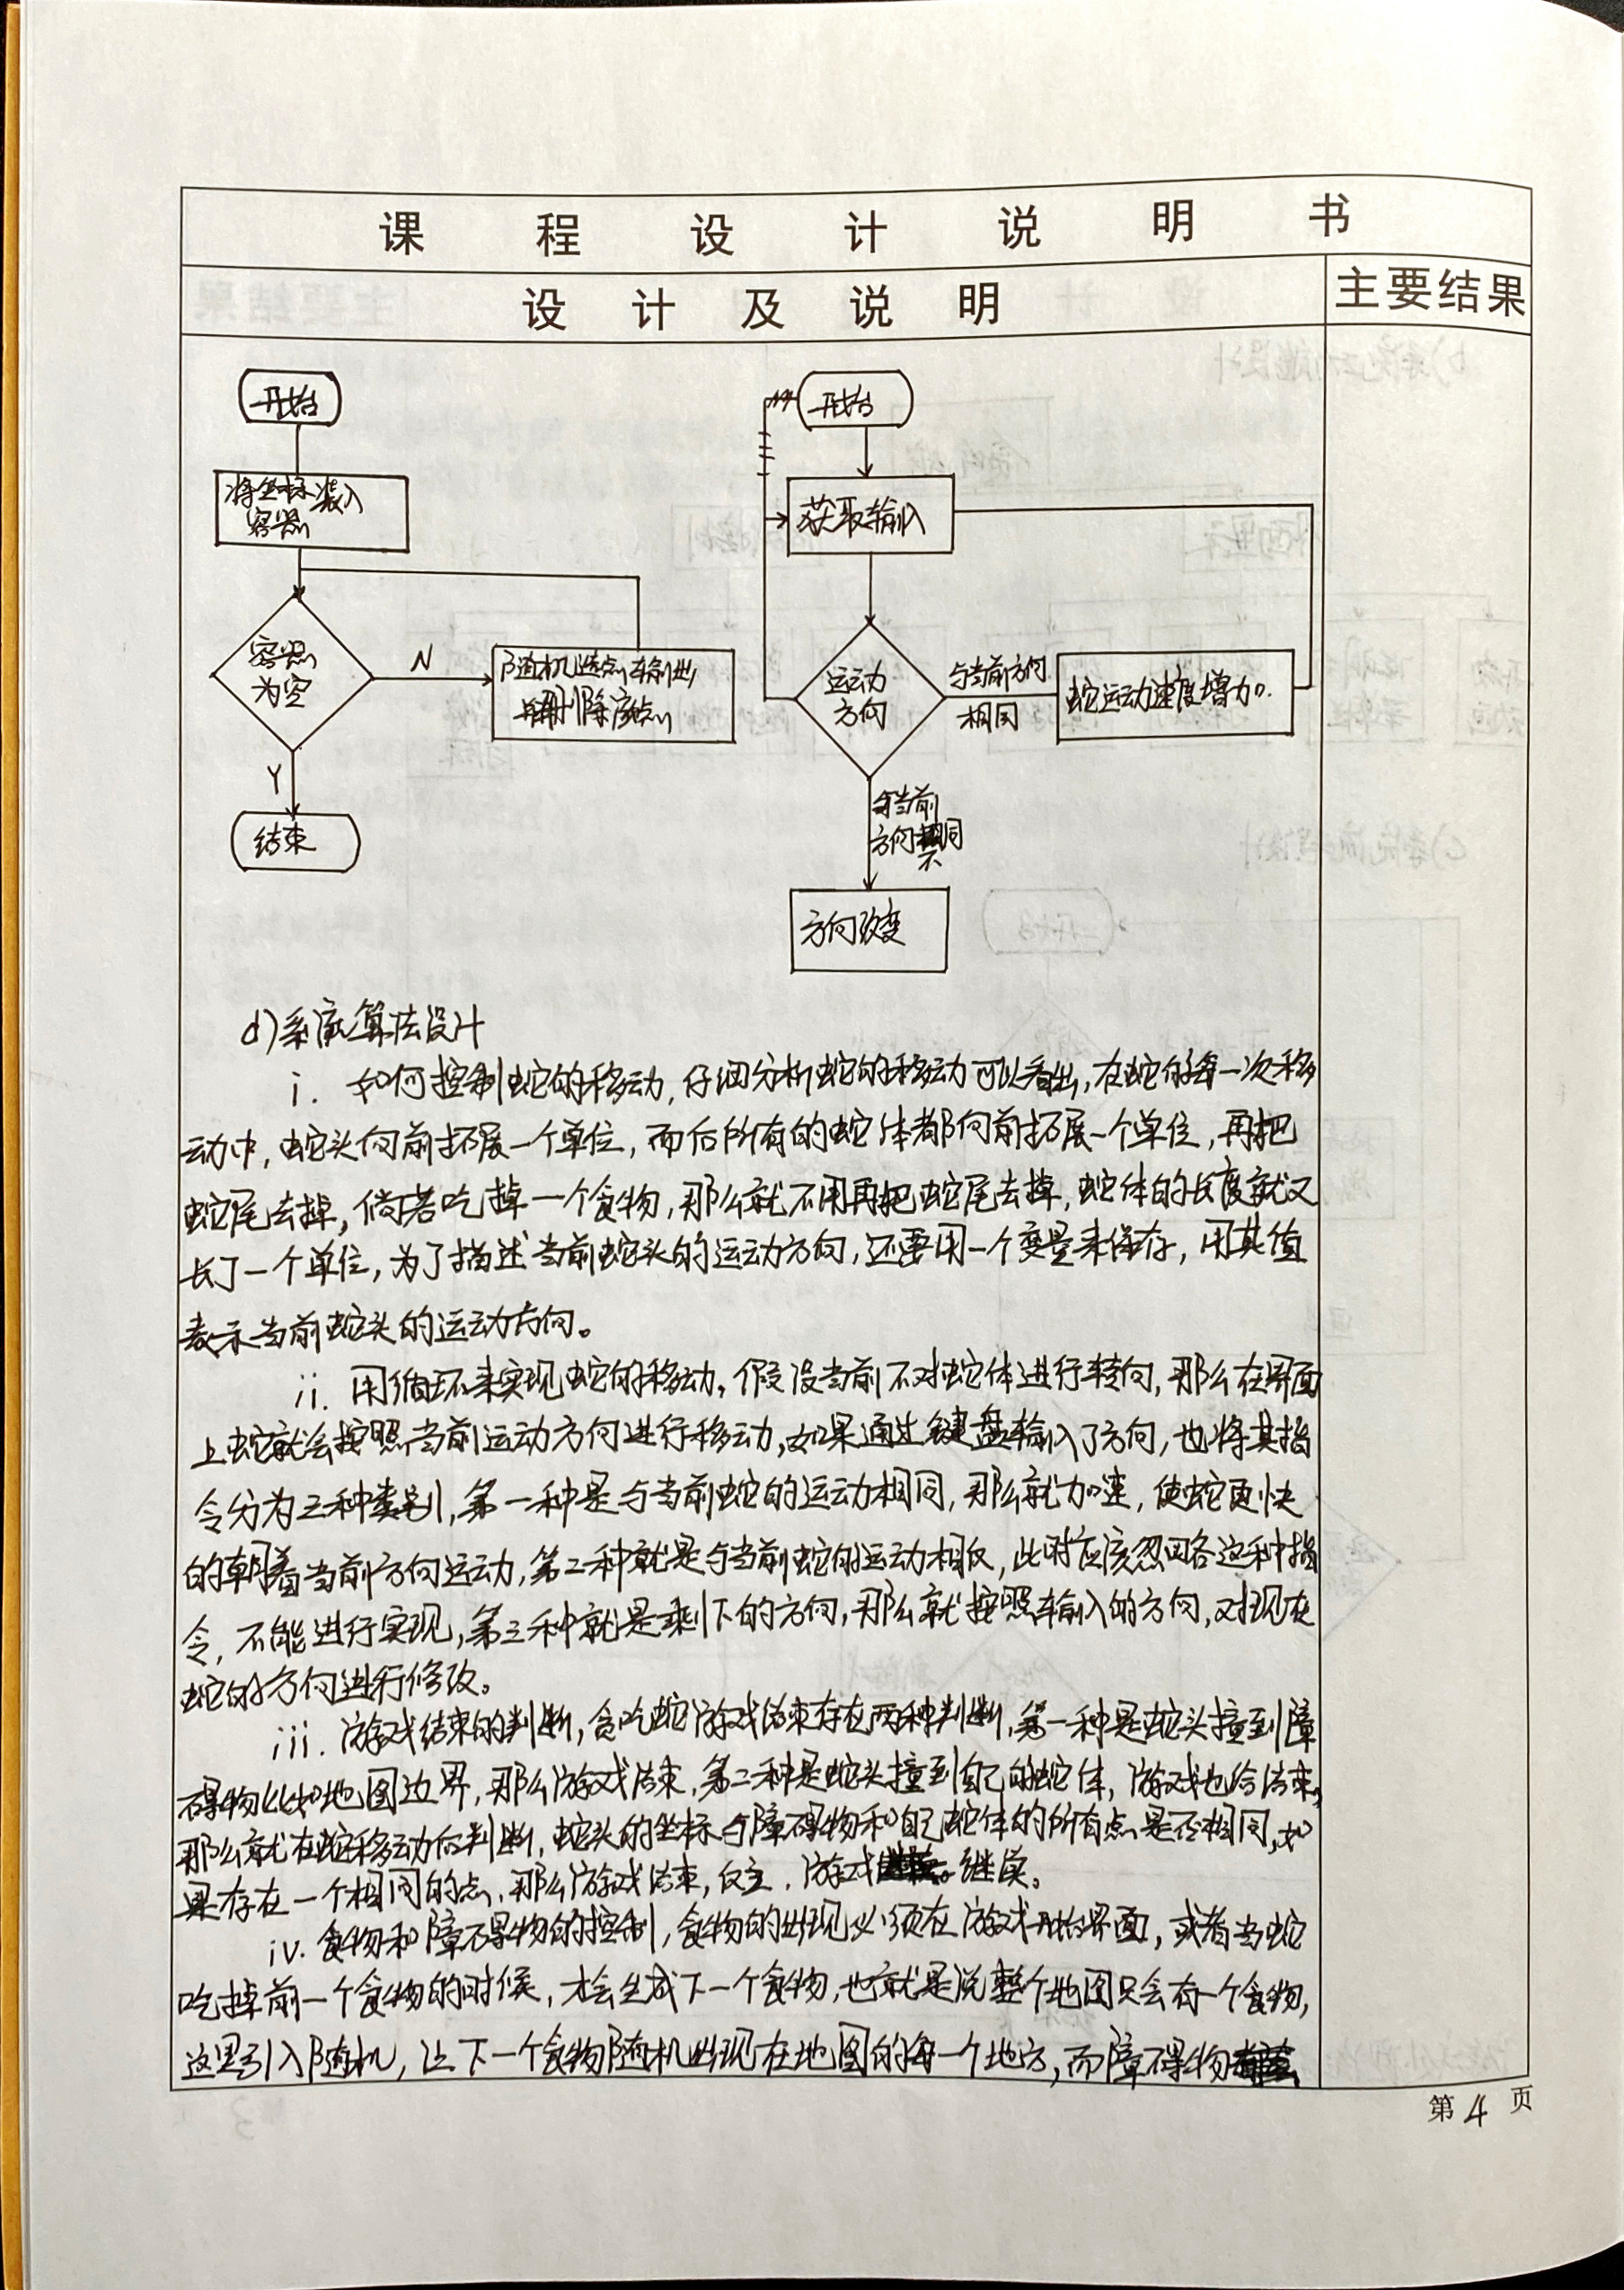 课程设计说明书
设计及说明
主要结果
开始
将坐标装入
容器
容器
为空
N
随机选点输出
再删除该点
Y
结束
开始
获取输入
运动
方向
与当前方向
相同
蛇运动速度增加
与当前
方向不同
方向改变
d)系统算法设计
i. 如何控制蛇的移动,仔细分析蛇的移动可以看出,在蛇的每一次移
动中,蛇头向前拓展一个单位,而后所有的蛇体都向前拓展一个单位,再把
蛇尾去掉,倘若吃掉一个食物,那么就不用再把蛇尾去掉,蛇体的长度就又
长了一个单位,为了描述当前蛇头的运动方向,还要用一个变量来保存,用其值
表示当前蛇头的运动方向。
ii. 用循环来实现蛇的移动,假设当前不对蛇体进行转向,那么在界面
上蛇就会按照当前运动方向进行移动,如果通过键盘输入了方向,也将其指
令分为三种类别,第一种是与当前蛇的运动相同,那么就加速,使蛇更快
的朝着当前方向运动,第二种就是与当前蛇的运动相反,此时应该忽略这种指
令,不能进行实现,第三种就是剩下的方向,那么就按照输入的方向,对现在
蛇的方向进行修改。
iii. 游戏结束的判断,贪吃蛇游戏结束存在两种判断,第一种是蛇头撞到障
碍物比如地图边界,那么游戏结束,第二种是蛇头撞到自己的蛇体,游戏也会结束,
那么就在蛇移动后判断,蛇头的坐标与障碍物和自己蛇体的所有点是否相同,如
果存在一个相同的点,那么游戏结束,反之,游戏继续。
iv. 食物和障碍物的控制,食物的出现必须在游戏开始界面,或者当蛇
吃掉前一个食物的时候,才会生成下一个食物,也就是说整个地图只会有一个食物,
这里引入随机,让下一个食物随机出现在地图的每一个地方,而障碍物
第4页